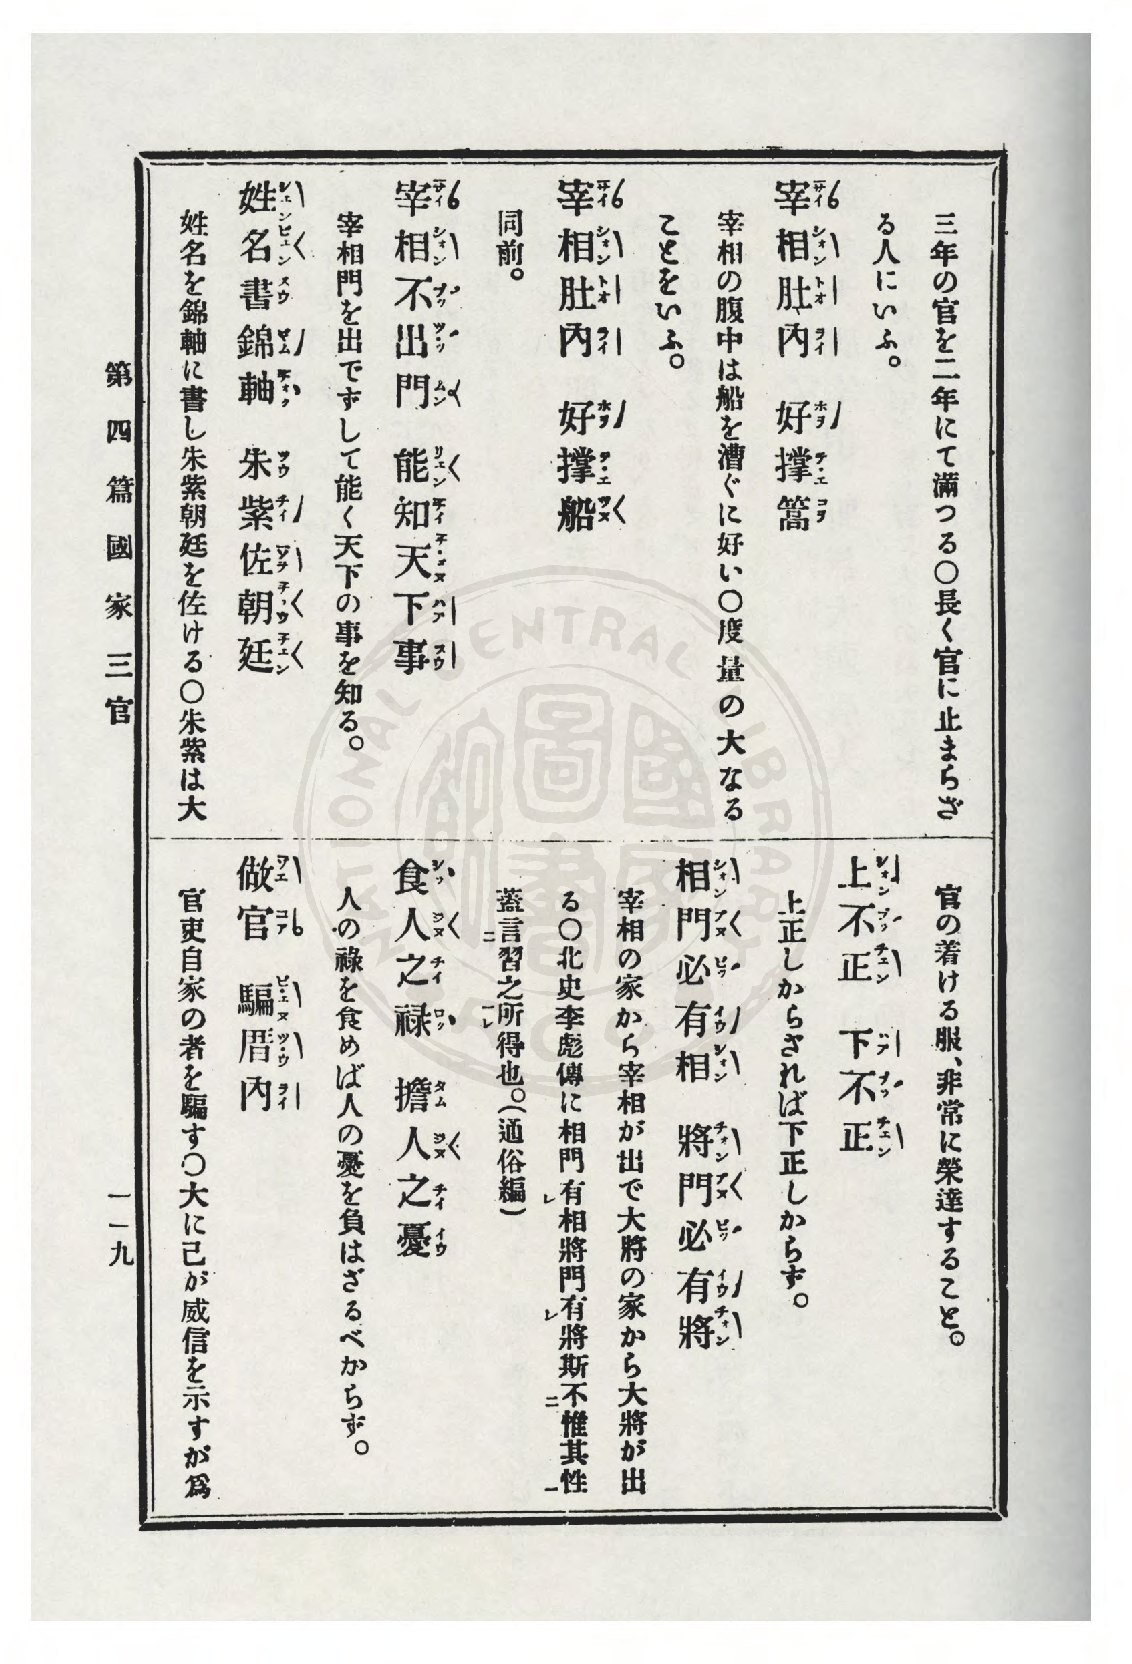 三年の官を二年にて滿つる〇長く官に止まらざ
る人にいふ。
宰相肚內　好撐篙
宰相の腹中は船を漕ぐに好い〇度量の大なる
ことをいふ。
宰相肚內　好撐船
同前。
宰相不出門　能知天下事
宰相門を出でずして能く天下の事を知る。
姓名書錦軸　朱紫佐朝廷
姓名を錦軸に書し朱紫朝廷を佐ける〇朱紫は大
官の着ける服、非常に榮達すること。
上不正　下不正
上正しからざれば下正しからず。
相門必有相　將門必有將
宰相の家から宰相が出で大將の家から大將が出
る〇北史李彪傳に相門有レ相將門有レ將斯不二惟其性一
蓋言二習之所一レ得也。(通俗編)
食人之祿　擔人之憂
人の祿を食めば人の憂を負はざるべからず。
做官　騙厝內
官吏自家の者を騙す〇大に己が威信を示すが爲
第四篇 國家 三官
一一九
NATIONAL CENTRAL LIBRARY
國家圖書館